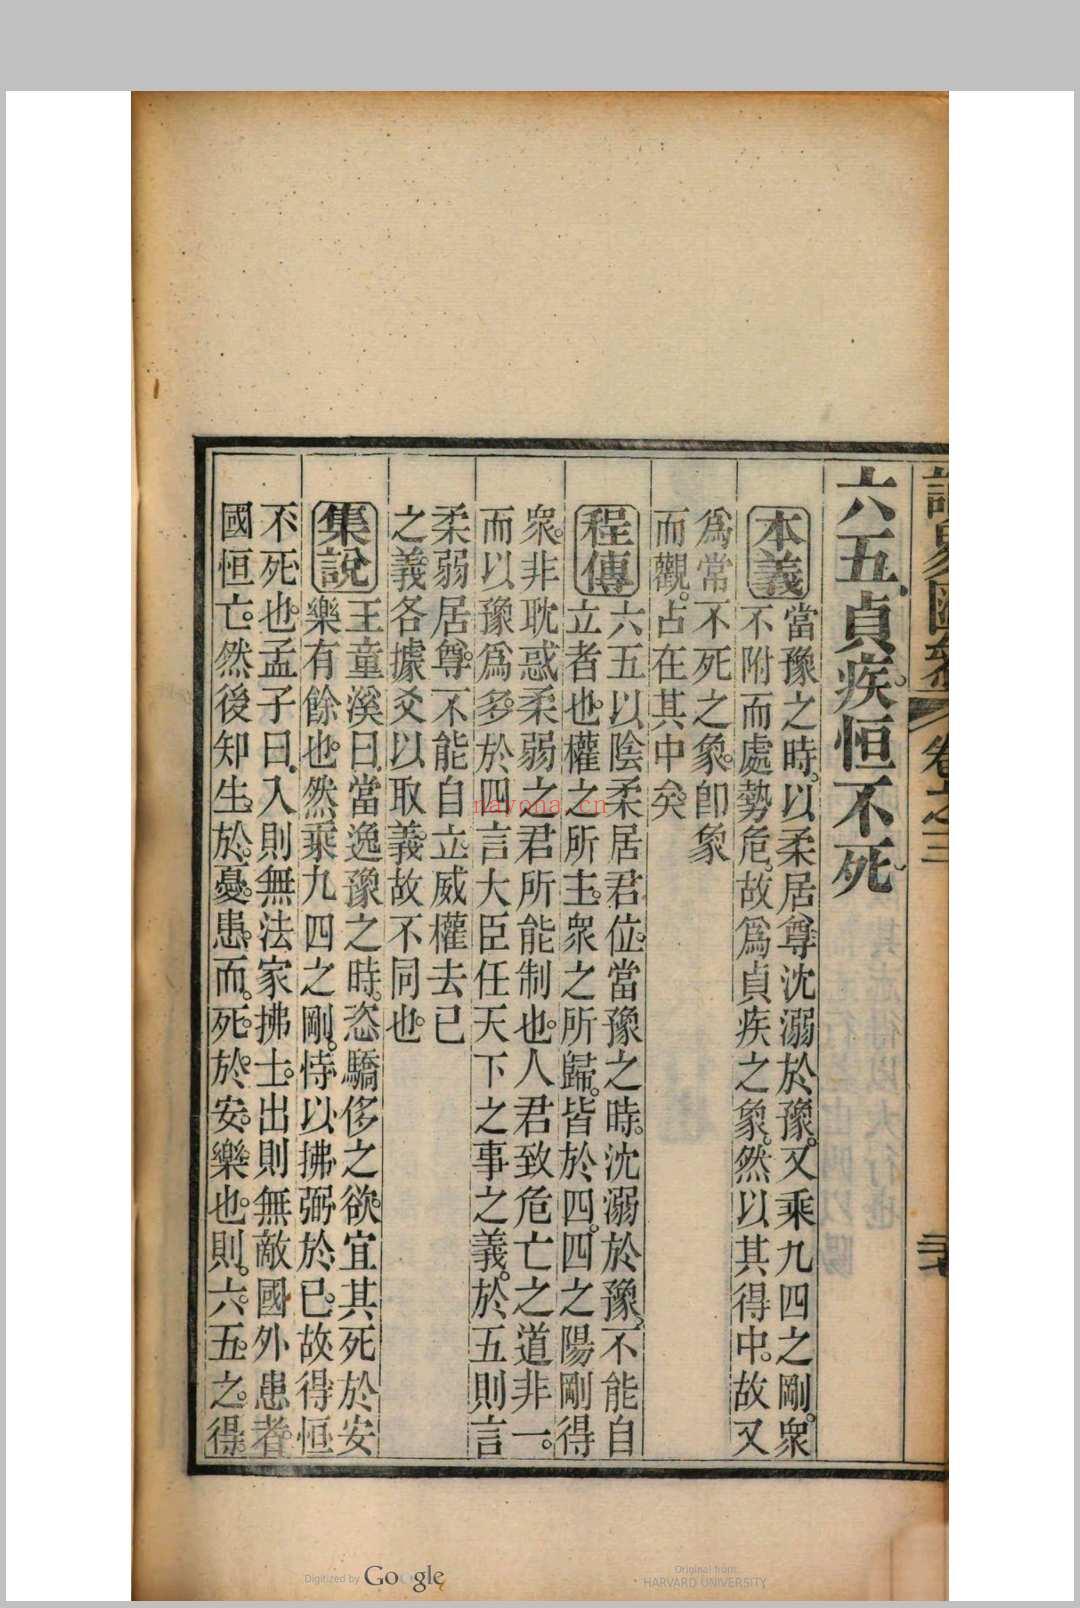 卷之三
六五。貞疾恒不死。
本義
當豫之時。以柔居尊沈溺於豫。又乘九四之剛。衆
不附而處勢危。故爲貞疾之象。然以其得中。故又
爲常不死之象。卽象
而觀。占在其中矣
程傳
六五以陰柔居君位。當豫之時。沈溺於豫。不能自
立者也。權之所主。衆之所歸。皆於四。四之陽剛得
衆。非耽惑柔弱之君所能制也。人君致危亡之道非一。
而以豫爲多。於四言大臣任天下之事之義。於五則言
柔弱居尊。不能自立。威權去已
之義各據爻以取義。故不同也。
集說
王童溪曰。當逸豫之時。恣驕侈之欲。宜其死於安
樂有餘也。然乘九四之剛。恃以拂弼於已。故得恒
不死也。孟子曰。入則無法家拂士。出則無敵國外患者。
國恒亡。然後知生。於。憂。患。而。死。於。安。樂。也。則。六。五。之。得。
nayona.cn
Digitized by Google
Original from
HARVARD UNIVERSITY